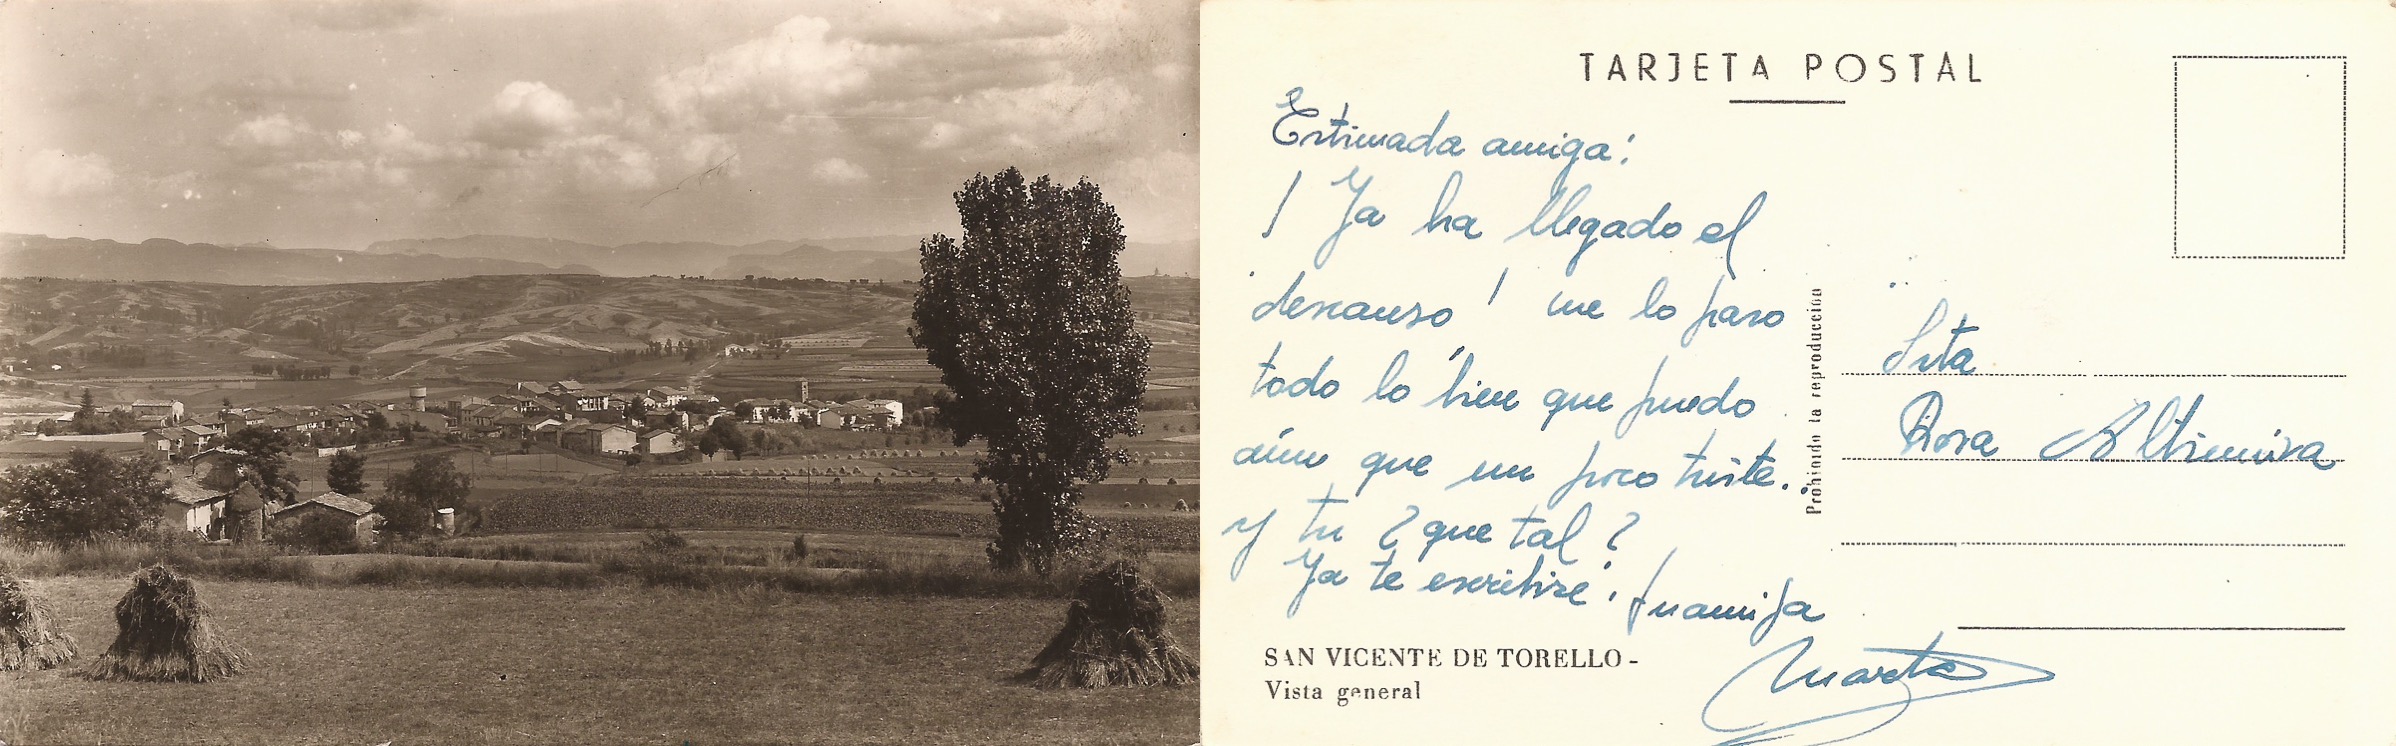 TARJETA POSTAL
Estimada amiga:
! Ya ha llegado el
descanso ! me lo paso
todo lo bien que puedo
aún que un poco triste..
y tu ? que tal ?
Ya te escribiré. tu amiga
Marta
SAN VICENTE DE TORELLO -
Vista general
Prohibido la reproducción
Srta
Rosa Altimira